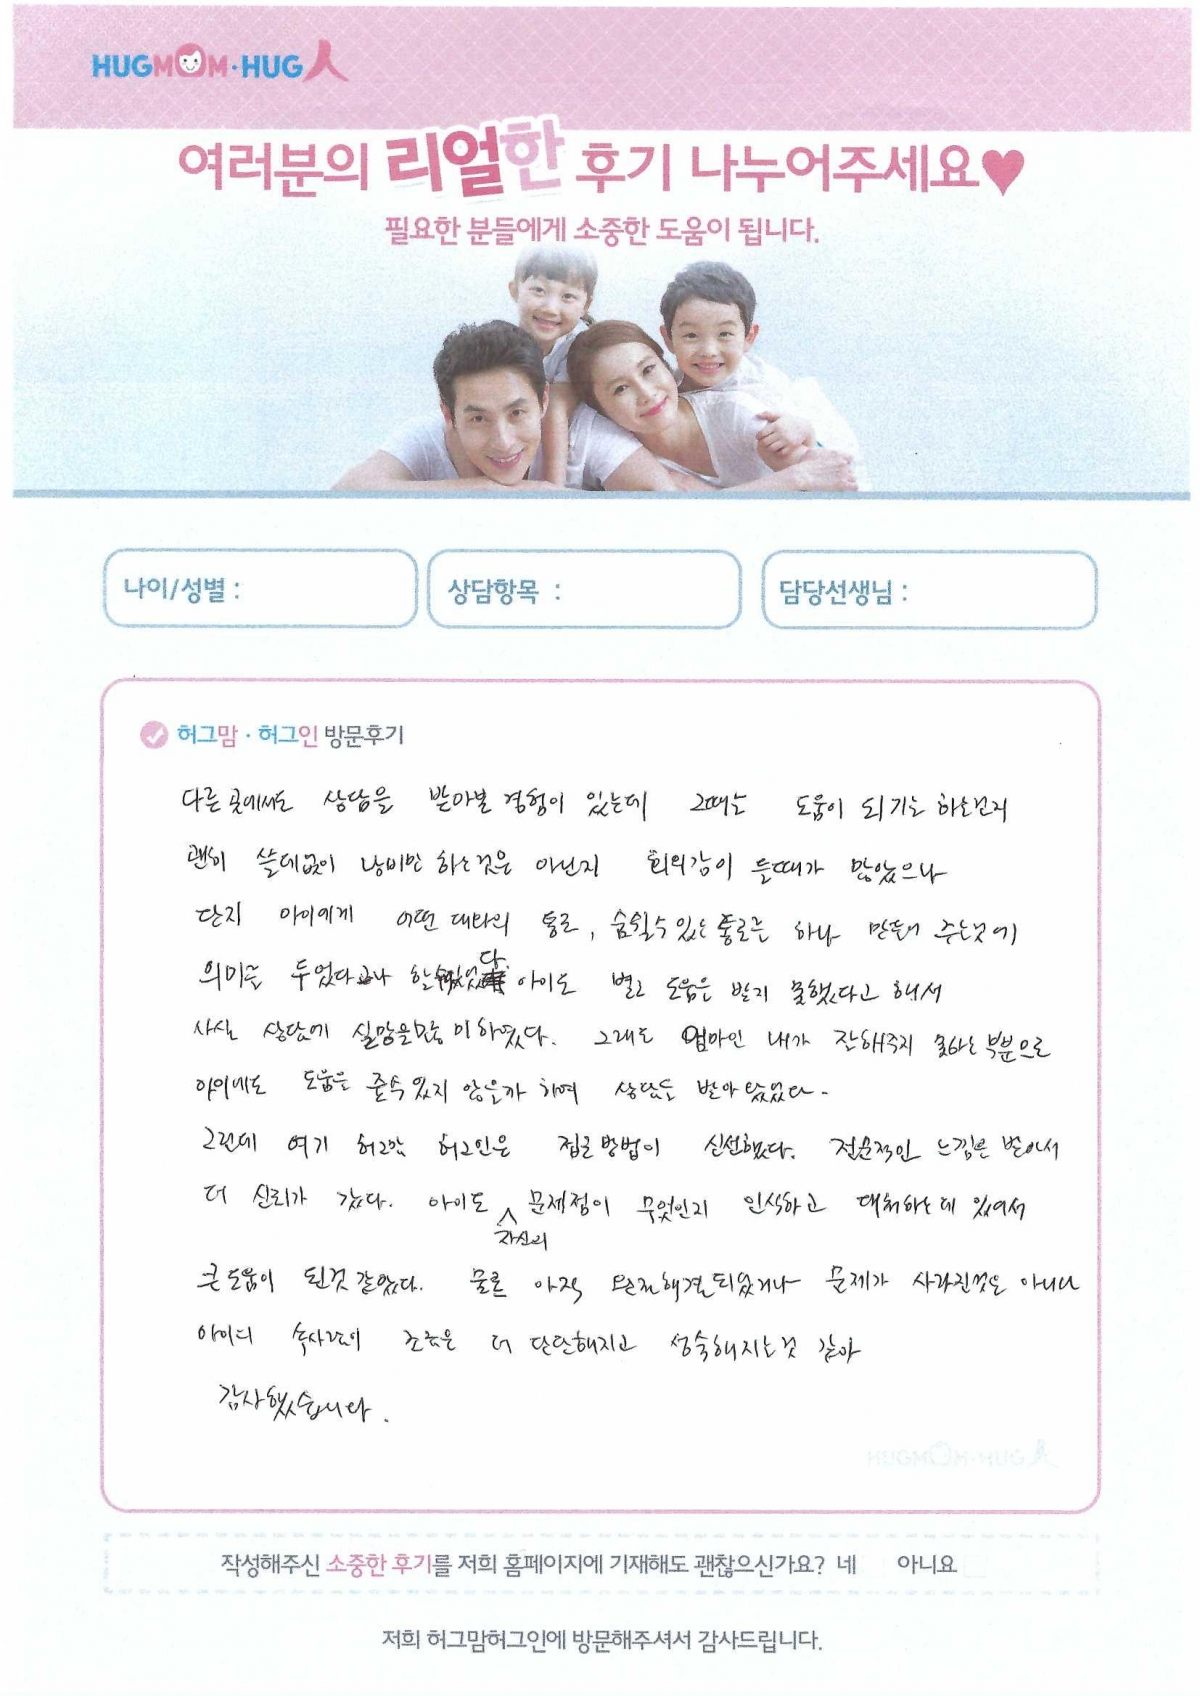 HUGMOM·HUG人
여러분의 리얼한 후기 나누어주세요♥
필요한 분들에게 소중한 도움이 됩니다.
나이/성별 :
상담항목 :
담당선생님 :
허그맘 · 허그인 방문후기
다른 곳에서도 상담을 받아볼 경험이 있는데 그때는 도움이 되기는 하는건지
괜히 쓸데없이 낭비만 하는것은 아닌지 회의감이 들때가 많았으나
단지 아이에게 어떤 대화의 통로, 숨쉴수 있는 통로를 하나 만들어 주는것에
의미를 두었다고나 할 다. 아이도 별로 도움을 받지 못했다고 해서
사실 상담에 실망을 많이 하였다. 그래도 엄마인 내가 잘해주지 못하는 부분으로
아이에도 도움을 줄수 있지 않을까 하여 상담도 받아 았었다.
그런데 여기 허그맘 허그인은 접근 방법이 신선했다. 전문적인 느낌을 받아서
더 신뢰가 갔다. 아이도 자신의 문제점이 무엇인지 인식하고 대처하는데 있어서
큰 도움이 된것 같았다. 물론 아직 완전 해결되었거나 문제가 사라진것은 아니나
아이의 속사람이 조금은 더 단단해지고 성숙해지는것 같아
감사했습니다.
작성해주신 소중한 후기를 저희 홈페이지에 기재해도 괜찮으신가요? 네 아니요
저희 허그맘허그인에 방문해주셔서 감사드립니다.